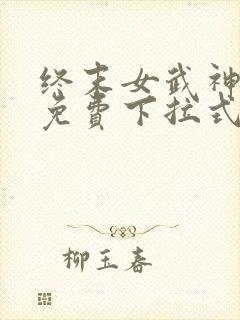 终末女武神
免費下拉式
柳玉春